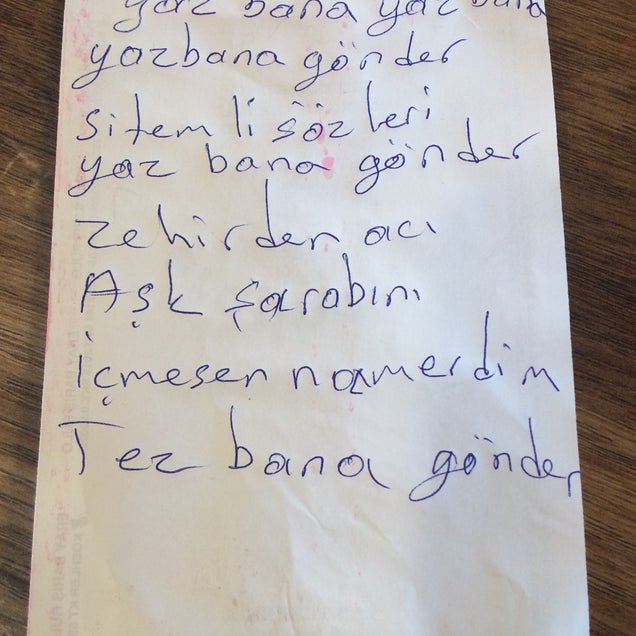 yaz bana yaz bana
yazbana gönder
sitemli sözleri
yaz bana gönder
zehirden acı
Aşk şarabını
içmesen namerdim
Tez bana gönder